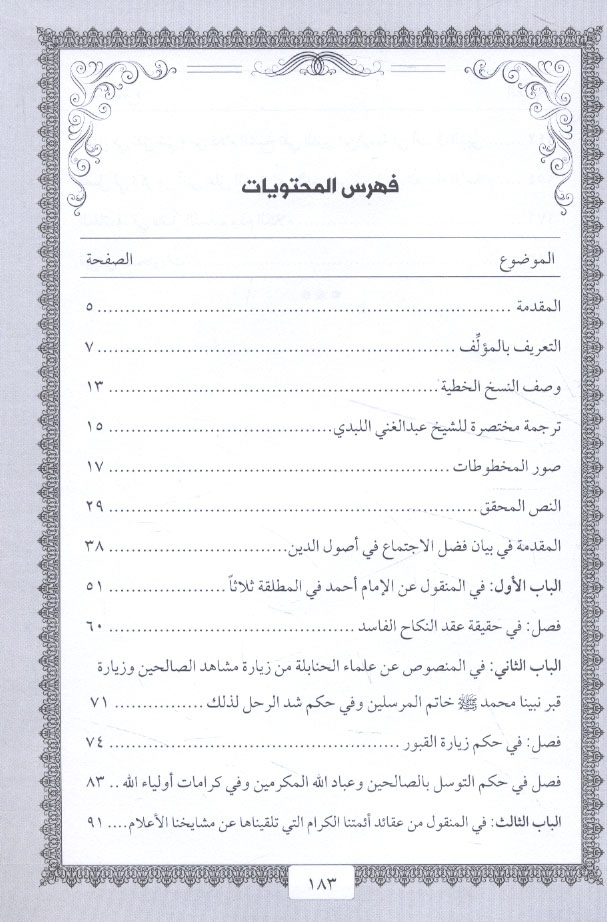 فهرس المحتويات
الموضوع الصفحة
المقدمة ........................................ ٥
التعريف بالمؤلِّف ........................................ ٧
وصف النسخ الخطية ........................................ ١٣
ترجمة مختصرة للشيخ عبدالغني اللبدي ........................................ ١٥
صور المخطوطات ........................................ ١٧
النص المحقق ........................................ ٢٩
المقدمة في بيان فضل الاجتماع في أصول الدين ........................................ ٣٨
الباب الأول: في المنقول عن الإمام أحمد في المطلقة ثلاثاً ........................................ ٥١
فصل: في حقيقة عقد النكاح الفاسد ........................................ ٦٠
الباب الثاني: في المنصوص عن علماء الحنابلة من زيارة مشاهد الصالحين وزيارة
قبر نبينا محمد ﷺ خاتم المرسلين وفي حكم شد الرحل لذلك ................ ٧١
فصل: في حكم زيارة القبور ........................................ ٧٤
فصل في حكم التوسل بالصالحين وعباد الله المكرمين وفي كرامات أولياء الله .. ٨٣
الباب الثالث: في المنقول من عقائد أئمتنا الكرام التي تلقيناها عن مشايخنا الأعلام.... ٩١
١٨٣